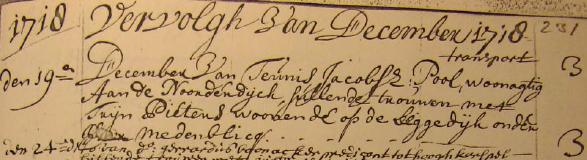 1718 Vervolgh Van December 1718 231
transport
den 19e December Van Teunis Jacobsz: Pool, woonagtig 3
Aan de Noorderdyck sullende trouwen met
Trijn Pieters woonende op de leggedijk onder
medenblicq
den 24 dto van do: gerardus predicant tot hooghkarspel 3